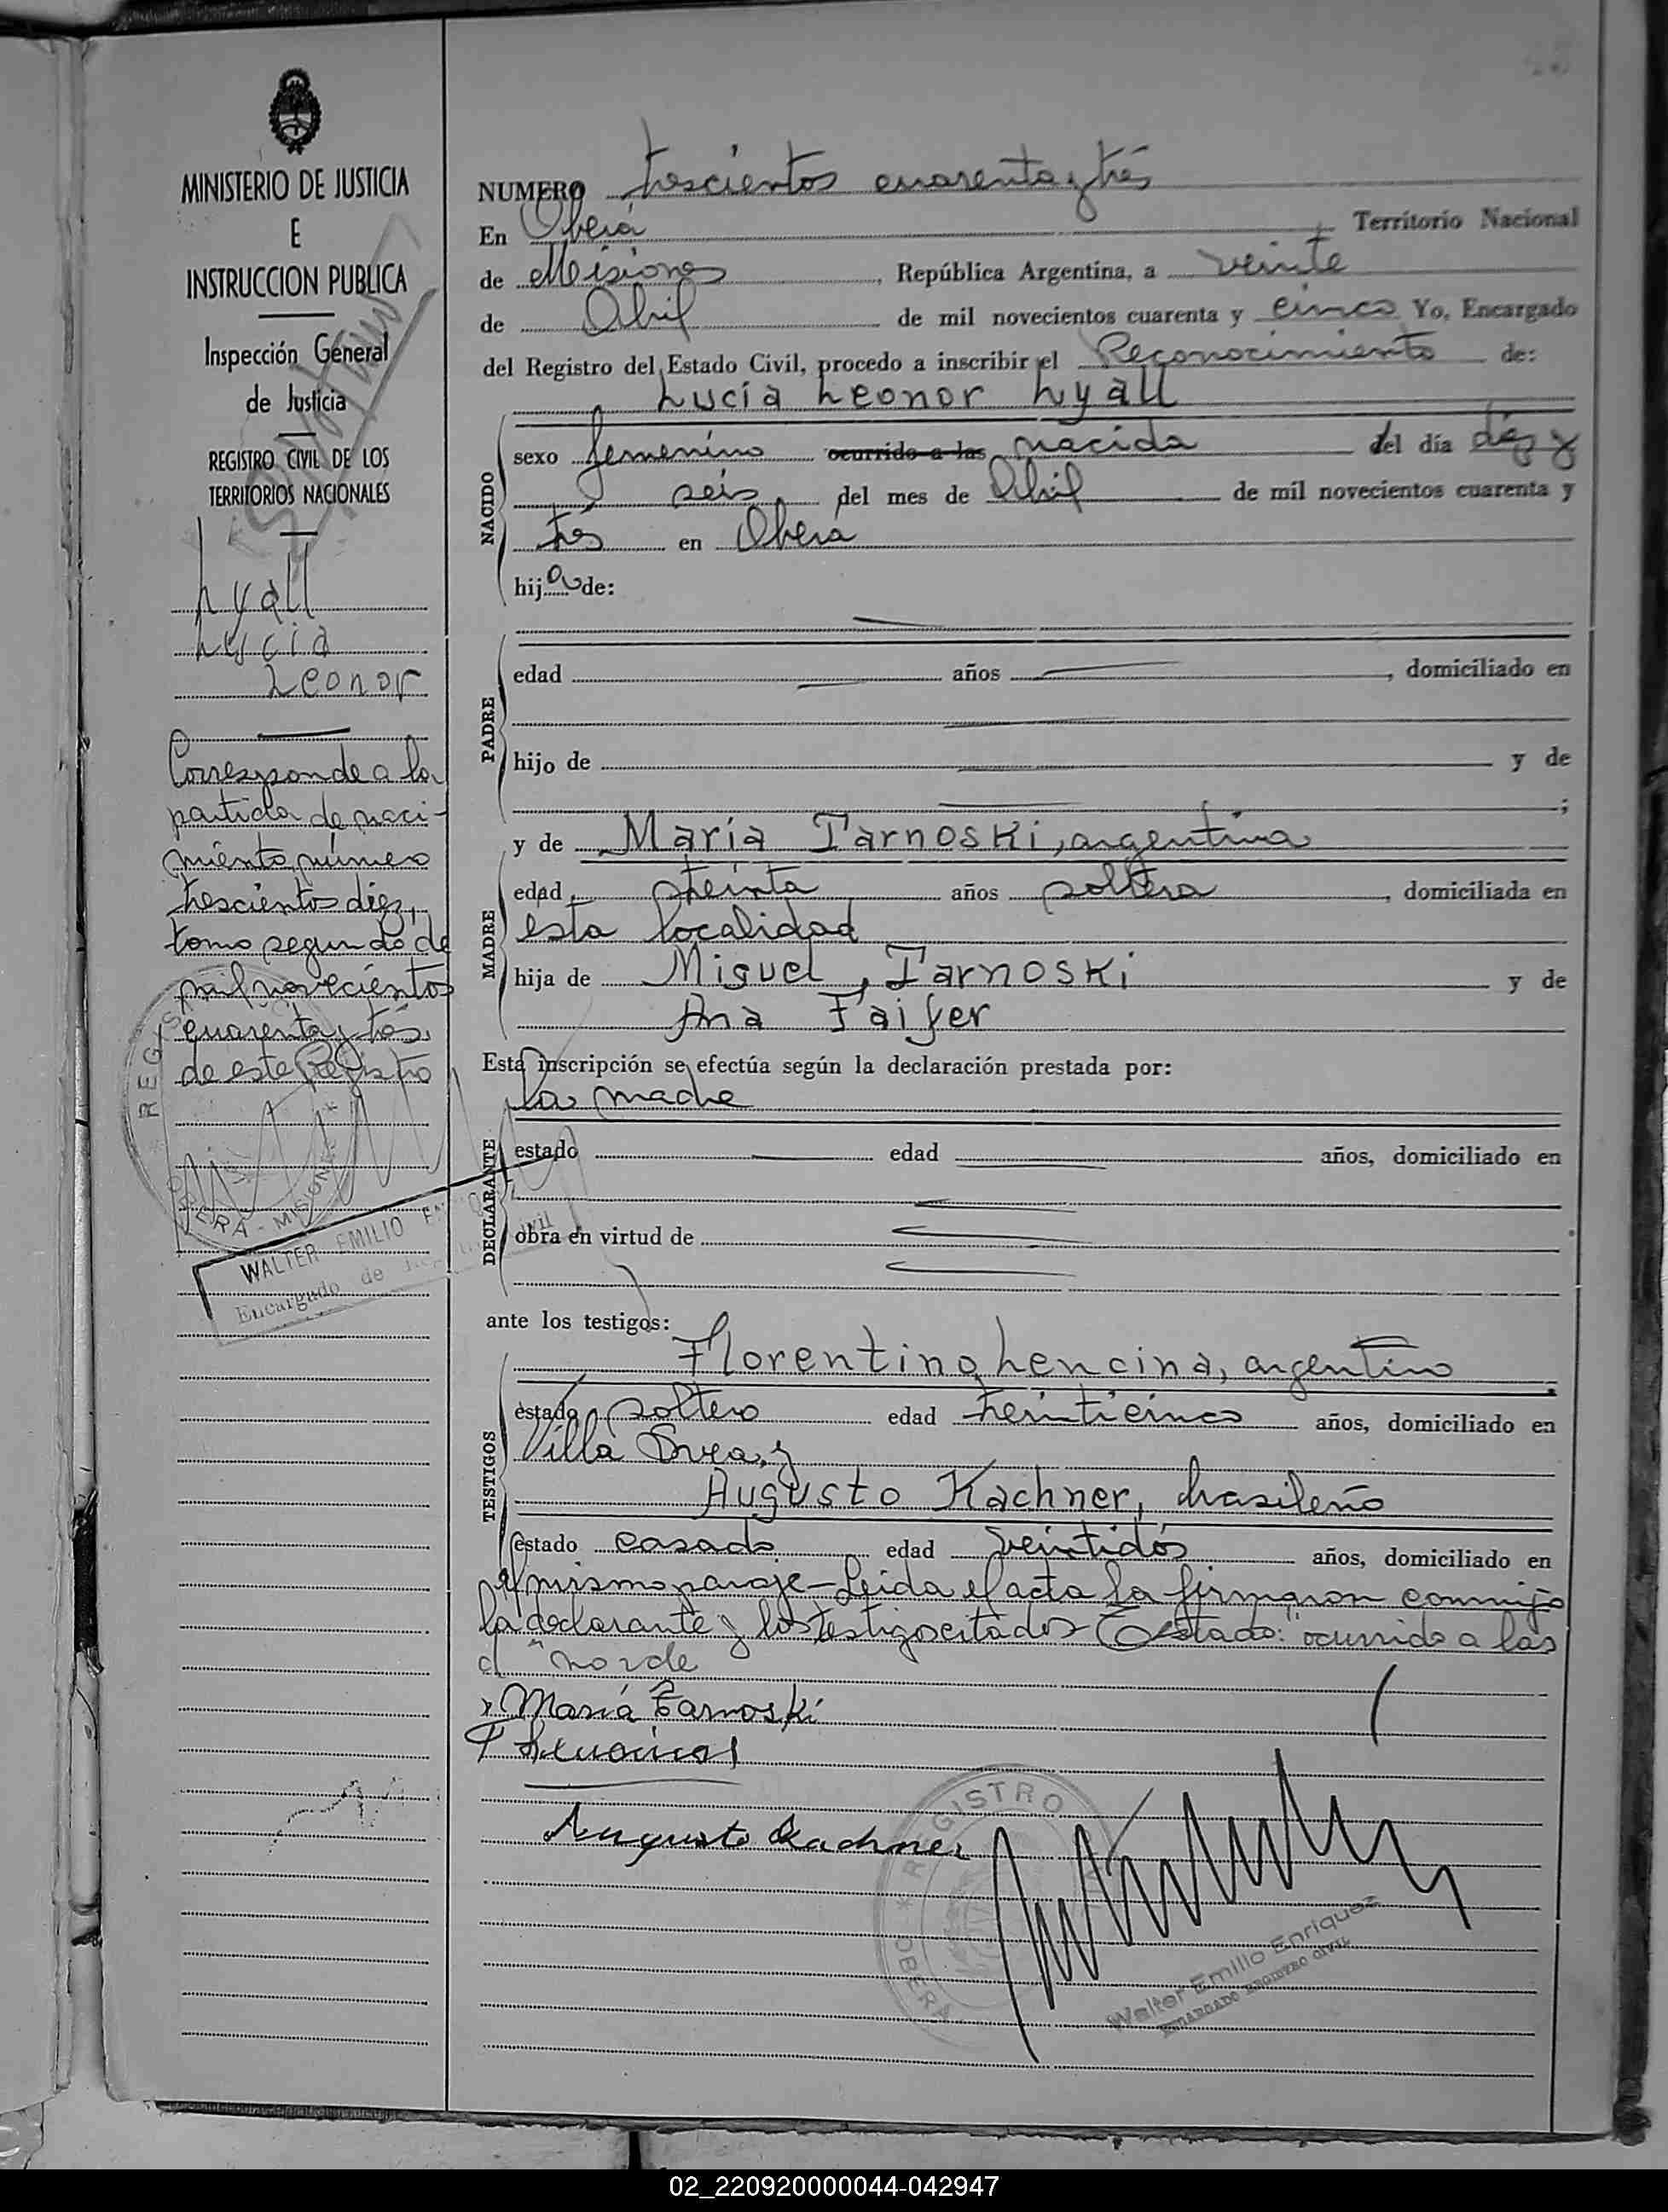 MINISTERIO DE JUSTICIA
E
INSTRUCCION PUBLICA
Inspección General
de Justicia
REGISTRO CIVIL DE LOS
TERRITORIOS NACIONALES
Lyall
Lucía
Leonor
Corresponde a la
partida de naci-
miento número
trescientos diez,
tomo segundo de
mil novecientos
cuarenta y trés,
de este Registro
REGIS
OBERA - MISIONES
WALTER EMILIO
Encargado de
NUMERO trescientos cuarenta y trés
En Oberá Territorio Nacional
de Misiones, República Argentina, a veinte
de Abril de mil novecientos cuarenta y cinco Yo, Encargado
del Registro del Estado Civil, procedo a inscribir el Reconocimiento de:
Lucía Leonor Lyall
NACIDO
sexo femenino ocurrido a las nacida del día diez y
seis del mes de Abril de mil novecientos cuarenta y
trés en Oberá
hija de:
PADRE
edad años , domiciliado en
hijo de y de
;
MADRE
y de María Tarnoski, argentina
edad treinta años soltera, domiciliada en
esta localidad
hija de Miguel Tarnoski y de
Ana Faifer
Esta inscripción se efectúa según la declaración prestada por:
la madre
DECLARANTE
estado edad años, domiciliado en
obra en virtud de
ante los testigos:
TESTIGOS
Florentino Lencina, argentino
estado soltero edad treinticinco años, domiciliado en
Villa Svea, y
Augusto Kachner, brasileño
estado casado edad veintidós años, domiciliado en
el mismo paraje - Leida el acta la firmaron conmigo
la declarante y los testigos citados Testado: "ocurrido a las
d" no vale
María Tarnoski
Augusto Kachner
REGISTRO
OBERA
Walter Emilio Enriquez
ENCARGADO REGISTRO CIVIL
02_220920000044-042947